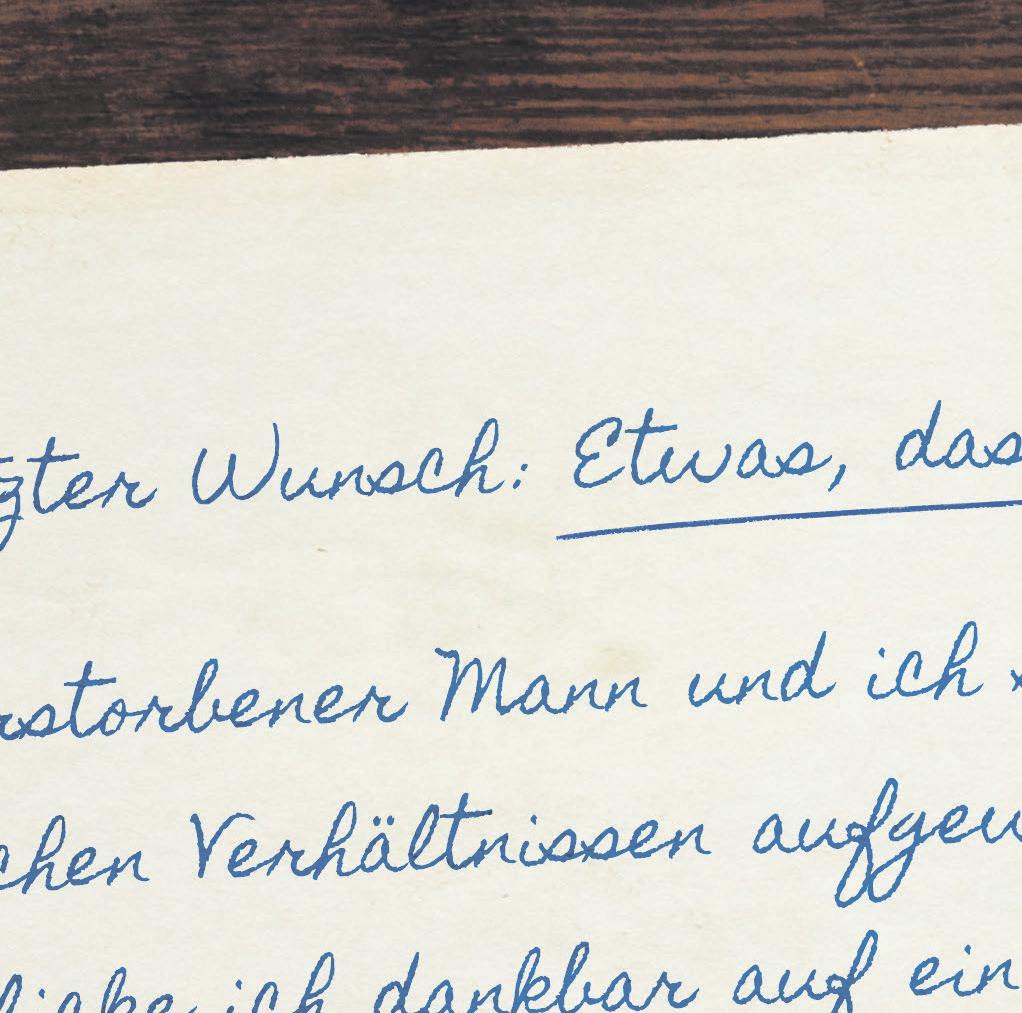 zter Wunsch: Etwas, das
rstorbener Mann und ich
chen Verhältnissen aufgew
ich dankbar auf ein